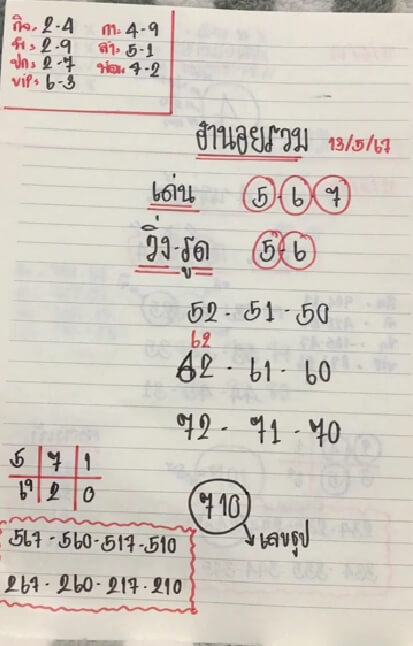 กิจ. 2-4 กา. 4-9
พิ. 2-9 ลา. 5-1
ปก. 2-7 พ่อ. 4-2
vip. 6-3
ฮานอยรวม 13/5/67
เด่น 5-6-7
วิ่ง-รูด 5-6
52-51-50
62
62-61-60
72-71-70
5 7 1
6 2 0
710
เลขธูป
567-560-517-510
267-260-217-210